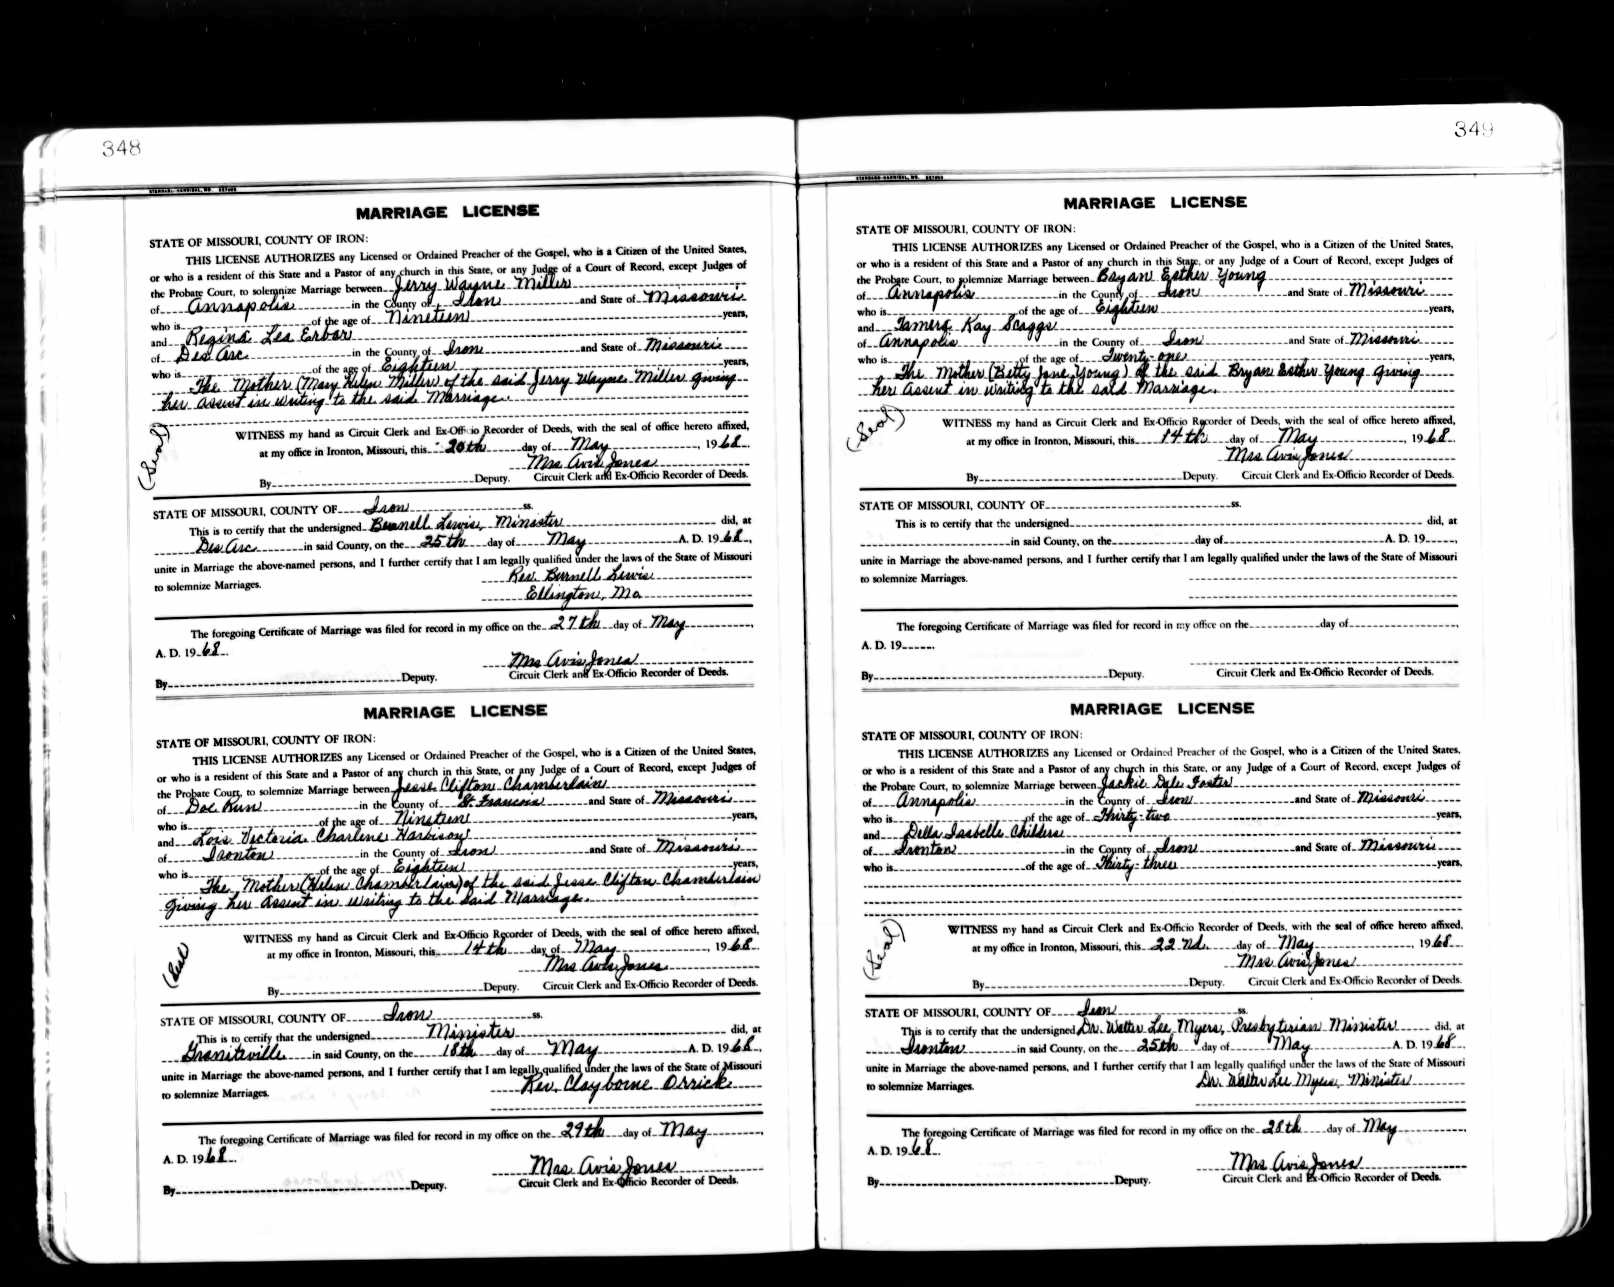 348
STANDARD-HANNIBAL, MO.
MARRIAGE LICENSE
STATE OF MISSOURI, COUNTY OF IRON:
THIS LICENSE AUTHORIZES any Licensed or Ordained Preacher of the Gospel, who is a Citizen of the United States,
or who is a resident of this State and a Pastor of any church in this State, or any Judge of a Court of Record, except Judges of
the Probate Court, to solemnize Marriage between Jerry Wayne Miller
of Annapolis in the County of Iron and State of Missouri
who is of the age of Nineteen years,
and Regina Lea Erbar
of Des Arc in the County of Iron and State of Missouri
who is of the age of Eighteen years,
The Mother (Mary Helen Miller) of the said Jerry Wayne Miller giving
her assent in writing to the said Marriage.
(Seal)
WITNESS my hand as Circuit Clerk and Ex-Officio Recorder of Deeds, with the seal of office hereto affixed,
at my office in Ironton, Missouri, this 20th day of May, 1968
Mrs Avis Jones
By Deputy. Circuit Clerk and Ex-Officio Recorder of Deeds.
STATE OF MISSOURI, COUNTY OF Iron ss.
This is to certify that the undersigned Burnell Lewis, Minister did, at
Des Arc in said County, on the 25th day of May A. D. 1968,
unite in Marriage the above-named persons, and I further certify that I am legally qualified under the laws of the State of Missouri
to solemnize Marriages. Rev. Burnell Lewis
Ellington, Mo
The foregoing Certificate of Marriage was filed for record in my office on the 27th day of May,
A. D. 1968.
Mrs Avis Jones
By Deputy. Circuit Clerk and Ex-Officio Recorder of Deeds.
MARRIAGE LICENSE
STATE OF MISSOURI, COUNTY OF IRON:
THIS LICENSE AUTHORIZES any Licensed or Ordained Preacher of the Gospel, who is a Citizen of the United States,
or who is a resident of this State and a Pastor of any church in this State, or any Judge of a Court of Record, except Judges of
the Probate Court, to solemnize Marriage between Jesse Clifton Chamberlain
of Doe Run in the County of St. Francois and State of Missouri
who is of the age of Nineteen years,
and Lois Victoria Charlene Harbison
of Ironton in the County of Iron and State of Missouri
who is of the age of Eighteen years,
The Mother (Helen Chamberlain) of the said Jesse Clifton Chamberlain
giving her assent in writing to the said Marriage.
(Seal)
WITNESS my hand as Circuit Clerk and Ex-Officio Recorder of Deeds, with the seal of office hereto affixed,
at my office in Ironton, Missouri, this 14th day of May, 1968
Mrs Avis Jones
By Deputy. Circuit Clerk and Ex-Officio Recorder of Deeds.
STATE OF MISSOURI, COUNTY OF Iron ss.
This is to certify that the undersigned Minister did, at
Graniteville in said County, on the 18th day of May A. D. 1968,
unite in Marriage the above-named persons, and I further certify that I am legally qualified under the laws of the State of Missouri
to solemnize Marriages. Rev. Clayborne Orrick
The foregoing Certificate of Marriage was filed for record in my office on the 29th day of May,
A. D. 1968.
Mrs Avis Jones
By Deputy. Circuit Clerk and Ex-Officio Recorder of Deeds.
349
STANDARD-HANNIBAL, MO.
MARRIAGE LICENSE
STATE OF MISSOURI, COUNTY OF IRON:
THIS LICENSE AUTHORIZES any Licensed or Ordained Preacher of the Gospel, who is a Citizen of the United States,
or who is a resident of this State and a Pastor of any church in this State, or any Judge of a Court of Record, except Judges of
the Probate Court, to solemnize Marriage between Bryan Esther Young
of Annapolis in the County of Iron and State of Missouri
who is of the age of Eighteen years,
and Tamera Kay Scaggs
of Annapolis in the County of Iron and State of Missouri
who is of the age of Twenty-one years,
The Mother (Betty Jane Young) of the said Bryan Esther Young giving
her assent in writing to the said Marriage.
(Seal)
WITNESS my hand as Circuit Clerk and Ex-Officio Recorder of Deeds, with the seal of office hereto affixed,
at my office in Ironton, Missouri, this 14th day of May, 1968
Mrs Avis Jones
By Deputy. Circuit Clerk and Ex-Officio Recorder of Deeds.
STATE OF MISSOURI, COUNTY OF ss.
This is to certify that the undersigned did, at
in said County, on the day of A. D. 19
unite in Marriage the above-named persons, and I further certify that I am legally qualified under the laws of the State of Missouri
to solemnize Marriages.
The foregoing Certificate of Marriage was filed for record in my office on the day of ,
A. D. 19
By Deputy. Circuit Clerk and Ex-Officio Recorder of Deeds.
MARRIAGE LICENSE
STATE OF MISSOURI, COUNTY OF IRON:
THIS LICENSE AUTHORIZES any Licensed or Ordained Preacher of the Gospel, who is a Citizen of the United States,
or who is a resident of this State and a Pastor of any church in this State, or any Judge of a Court of Record, except Judges of
the Probate Court, to solemnize Marriage between Jackie Dale Foster
of Annapolis in the County of Iron and State of Missouri
who is of the age of Thirty-two years,
and Della Isabelle Childers
of Ironton in the County of Iron and State of Missouri
who is of the age of Thirty-three years,
(Seal)
WITNESS my hand as Circuit Clerk and Ex-Officio Recorder of Deeds, with the seal of office hereto affixed,
at my office in Ironton, Missouri, this 22nd. day of May, 1968
Mrs Avis Jones
By Deputy. Circuit Clerk and Ex-Officio Recorder of Deeds.
STATE OF MISSOURI, COUNTY OF Iron ss.
This is to certify that the undersigned Dr. Walter Lee Myers, Presbyterian Minister did, at
Ironton in said County, on the 25th day of May A. D. 1968,
unite in Marriage the above-named persons, and I further certify that I am legally qualified under the laws of the State of Missouri
to solemnize Marriages. Dr. Walter Lee Myers, Minister
The foregoing Certificate of Marriage was filed for record in my office on the 28th day of May,
A. D. 1968.
Mrs Avis Jones
By Deputy. Circuit Clerk and Ex-Officio Recorder of Deeds.